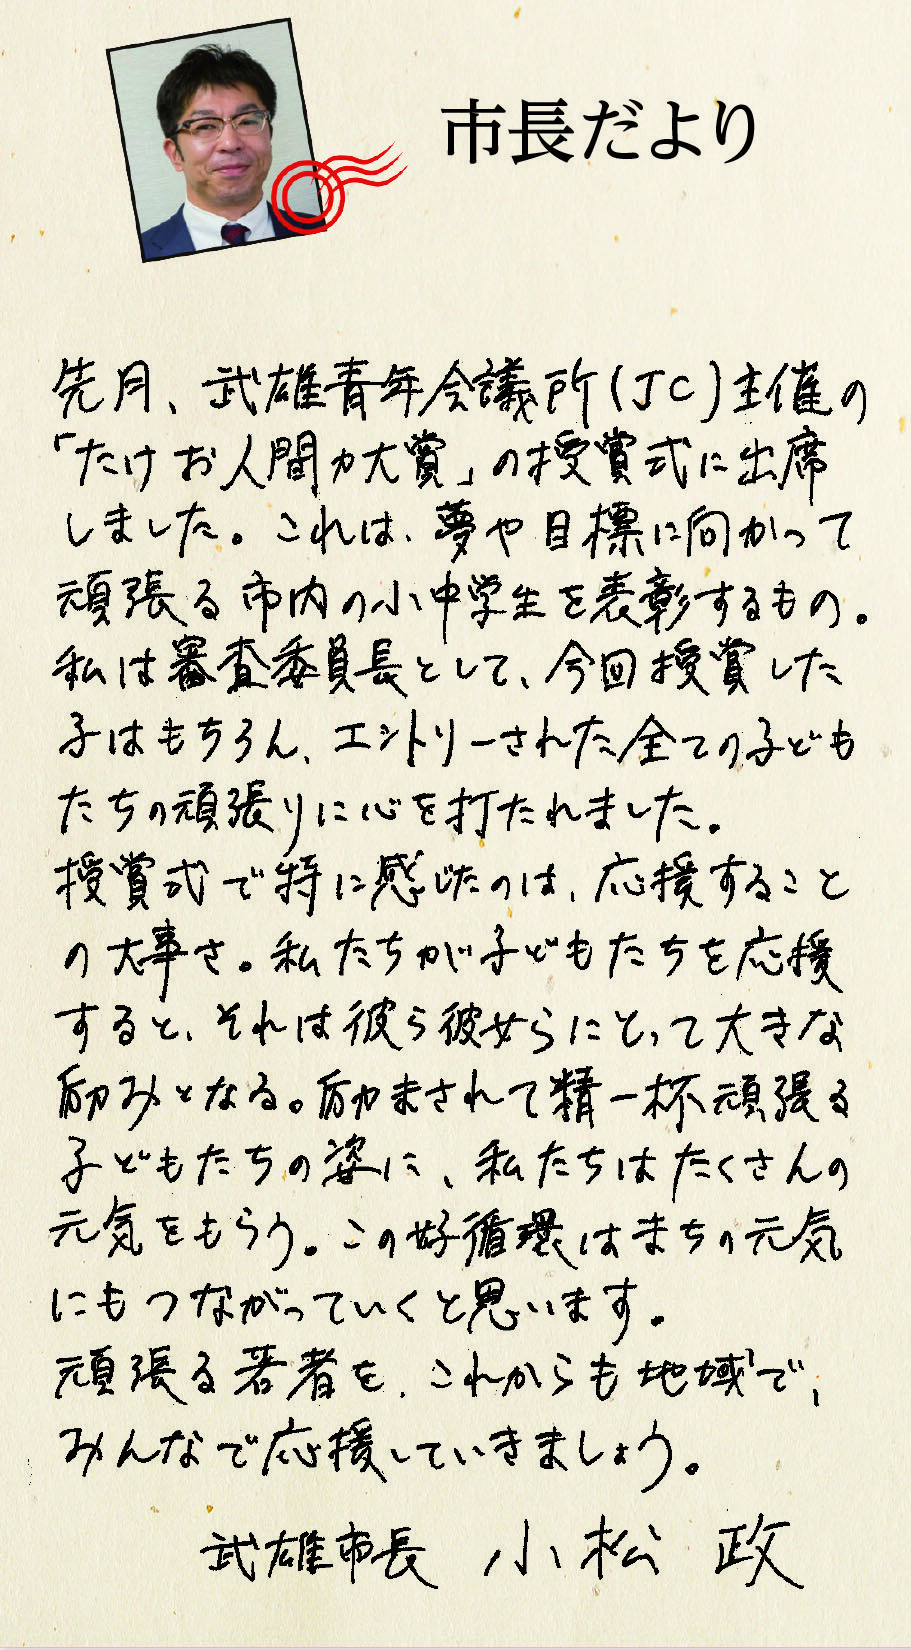 市長だより
先月、武雄青年会議所(JC)主催の
「たけお人間力大賞」の授賞式に出席
しました。これは、夢や目標に向かって
頑張る市内の小中学生を表彰するもの。
私は審査委員長として、今回授賞した
子はもちろん、エントリーされた全ての子ども
たちの頑張りに心を打たれました。
授賞式で特に感じたのは、応援すること
の大事さ。私たちが子どもたちを応援
すると、それは彼ら彼女らにとって大きな
励みとなる。励まされて精一杯頑張る
子どもたちの姿に、私たちはたくさんの
元気をもらう。この好循環はまちの元気
にもつながっていくと思います。
頑張る若者を、これからも地域で、
みんなで応援していきましょう。
武雄市長 小松 政